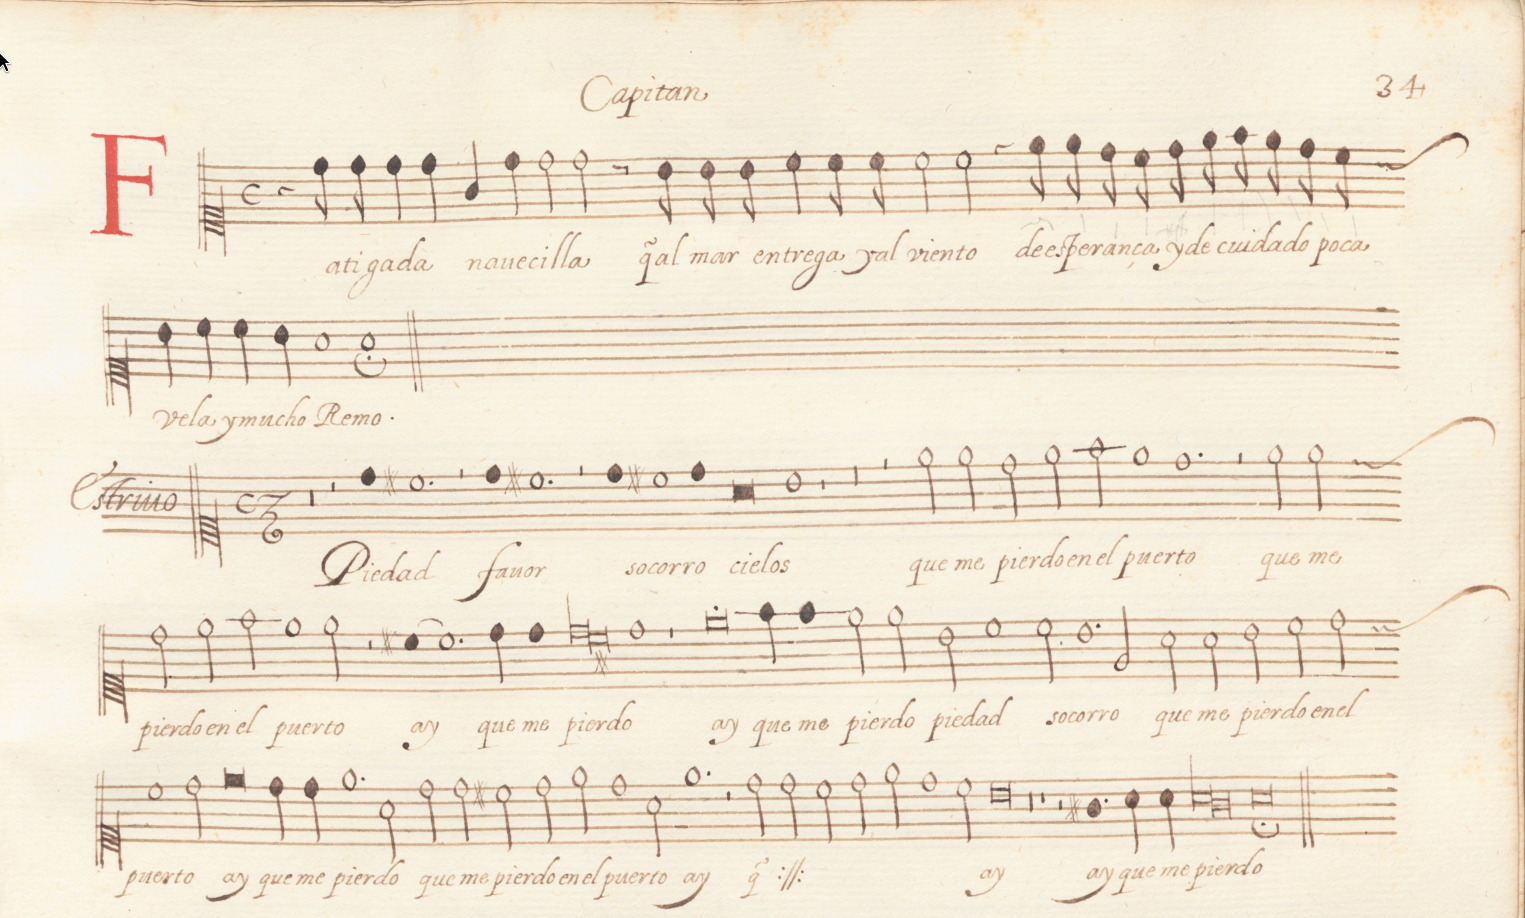 Capitan
34
F
ati gada nauecilla q̃ al mar entrega y al viento de esperança y de cuidado poca
vela y mucho Remo.
Estriuo
Piedad fauor socorro cielos que me pierdo en el puerto que me
pierdo en el puerto ay que me pierdo ay que me pierdo piedad socorro que me pierdo en el
puerto ay que me pierdo que me pierdo en el puerto ay q̃ :||: ay ay que me pierdo